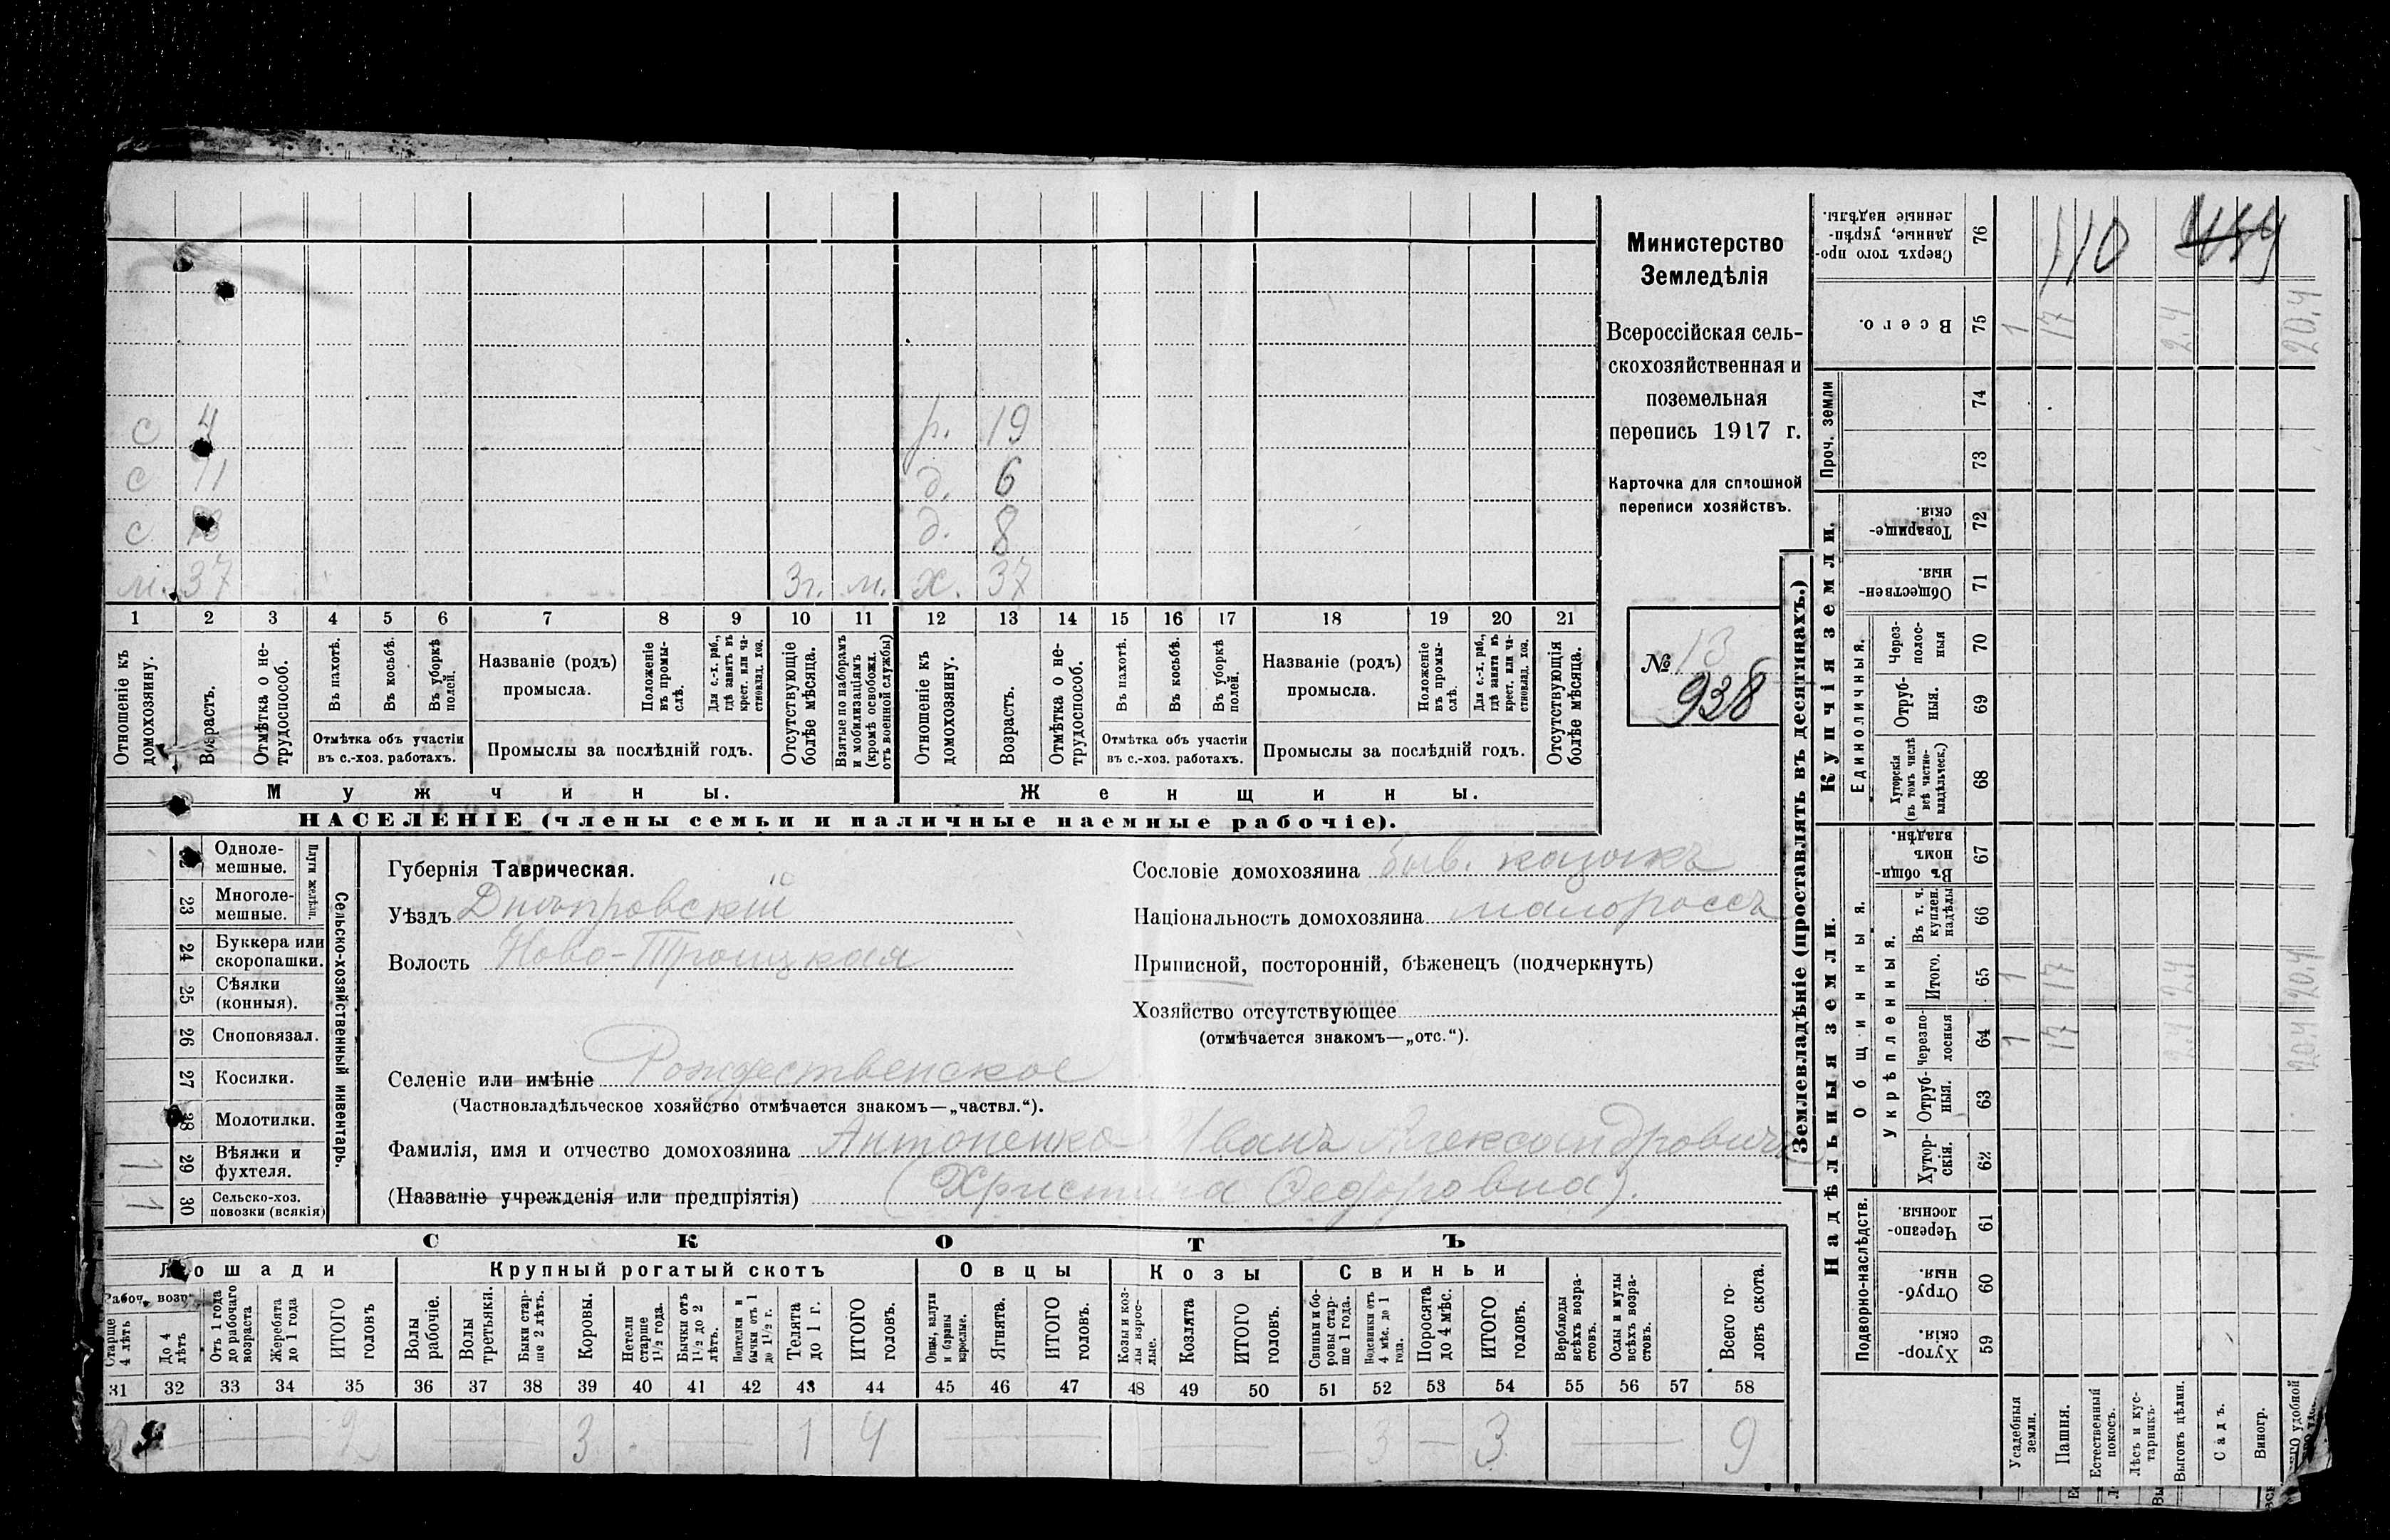 Министерство
Земледѣлія
Всероссійская сель-
скохозяйственная и
поземельная
перепись 1917 г.
Карточка для сплошной
переписи хозяйствъ.
№ 13
938
с 4 р. 19
с 11 д. 6
с 13 д. 8
м. 37 3г. м. х. 37
1 2 3 4 5 6 7 8 9 10 11 12 13 14 15 16 17 18 19 20 21
Отношеніе къ домохозяину.
Возрастъ.
Отмѣтка о не-трудоспособ.
Въ пахотѣ.
Въ косьбѣ.
Въ уборкѣ полей.
Отмѣтка объ участіи
въ с.-хоз. работахъ.
Названіе (родъ)
промысла.
Положеніе въ промы-слѣ.
Для с.-х. раб., гдѣ занятъ въ крест. или ча-стновлад. хоз.
Промыслы за послѣдній годъ.
Отсутствующіе болѣе мѣсяца.
Взятые по наборамъ и мобилизаціямъ (кромѣ освобожд. отъ военной службы)
Отношеніе къ домохозяину.
Возрастъ.
Отмѣтка о не-трудоспособ.
Въ пахотѣ.
Въ косьбѣ.
Въ уборкѣ полей.
Отмѣтка объ участіи
въ с.-хоз. работахъ.
Названіе (родъ)
промысла.
Положеніе въ промы-слѣ.
Для с.-х. раб., гдѣ занята въ крест. или ча-стновлад. хоз.
Промыслы за послѣдній годъ.
Отсутствующія болѣе мѣсяца.
Мужчины. Женщины.
НАСЕЛЕНІЕ (члены семьи и наличные наемные рабочіе).
Сельско-хозяйственный инвентарь.
Плуги желѣзн.
22 Одноле-мешные.
23 Многоле-мешные.
24 Буккера или скоропашки.
25 Сѣялки (конныя).
26 Сноповязал.
27 Косилки.
28 Молотилки.
1 29 Вѣялки и фухтеля.
1 30 Сельско-хоз. повозки (всякія)
Губернія Таврическая.
Уѣздъ Днѣпровскій
Волость Ново-Троицкая
Сословіе домохозяина быв. казакъ
Національность домохозяина малороссъ
Приписной, посторонній, бѣженецъ (подчеркнуть)
Хозяйство отсутствующее
(отмѣчается знакомъ—„отс.“).
Селеніе или имѣніе Рождественское
(Частновладѣльческое хозяйство отмѣчается знакомъ—„частвл.“).
Фамилія, имя и отчество домохозяина Антоненко Иванъ Александровичъ
(Названіе учрежденія или предпріятія) (Христина Федоровна).
СКОТЪ
Лошади Крупный рогатый скотъ Овцы Козы Свиньи
Рабоч. возр.
Старше 4 лѣтъ
До 4 лѣтъ
Отъ 1 года до рабочаго возраста
Жеребята до 1 года
ИТОГО головъ
Волы рабочіе.
Волы третьяки.
Быки стар-ше 2 лѣтъ.
Коровы.
Нетели старше 1½ года.
Бычки отъ 1½ до 2 лѣтъ.
Подтелки и бычки отъ 1 до 1½ г.
Телята до 1 г.
ИТОГО головъ.
Овцы, валухи и бараны взрослые.
Ягнята.
ИТОГО головъ.
Козы и коз-лы взрос-лые.
Козлята
ИТОГО головъ.
Свиньи и бо-ровы стар-ше 1 года.
Подсвинки отъ 4 мѣс. до 1 года.
Поросята до 4 мѣс.
ИТОГО головъ.
Верблюды всѣхъ возра-стовъ.
Ослы и мулы всѣхъ возра-стовъ.
Всего го-ловъ скота.
31 32 33 34 35 36 37 38 39 40 41 42 43 44 45 46 47 48 49 50 51 52 53 54 55 56 57 58
2 — — 2 — — 3 — 1 4 — — — 3 — 3 — 9
Землевладѣніе (проставлять въ десятинахъ.)
Надѣльныя земли. Купчія земли. Проч. земли
Подворно-наслѣдств.
Общинныя.
Укрѣпленныя.
Единоличныя.
Хутор-скія. 59
Отруб-ныя. 60
Черезпо-лосныя. 61
Хутор-скія. 62
Отруб-ныя. 63
Черезпо-лосныя 64
Итого. 65
Въ т. ч. куплен. надѣлы 66
Въ общи-номъ владѣн. 67
Хуторскія (въ томъ числѣ всѣ частно-владѣльческ.) 68
Отруб-ныя. 69
Через-полос-ныя 70
Обществен-ныя. 71
Товарище-скія. 72
73
74
Всего. 75
Сверхъ того про-данные, укрѣп-ленные надѣлы. 76
Усадебныя земли. 1 1 1
Пашня. 17 17 17
Естественный покосъ.
Лѣсъ и кус-тарникъ.
Выгонъ цѣлин. 2.4 2.4 2.4
Садъ.
Виногр.
удобной 20.4 20.4 20.4
110